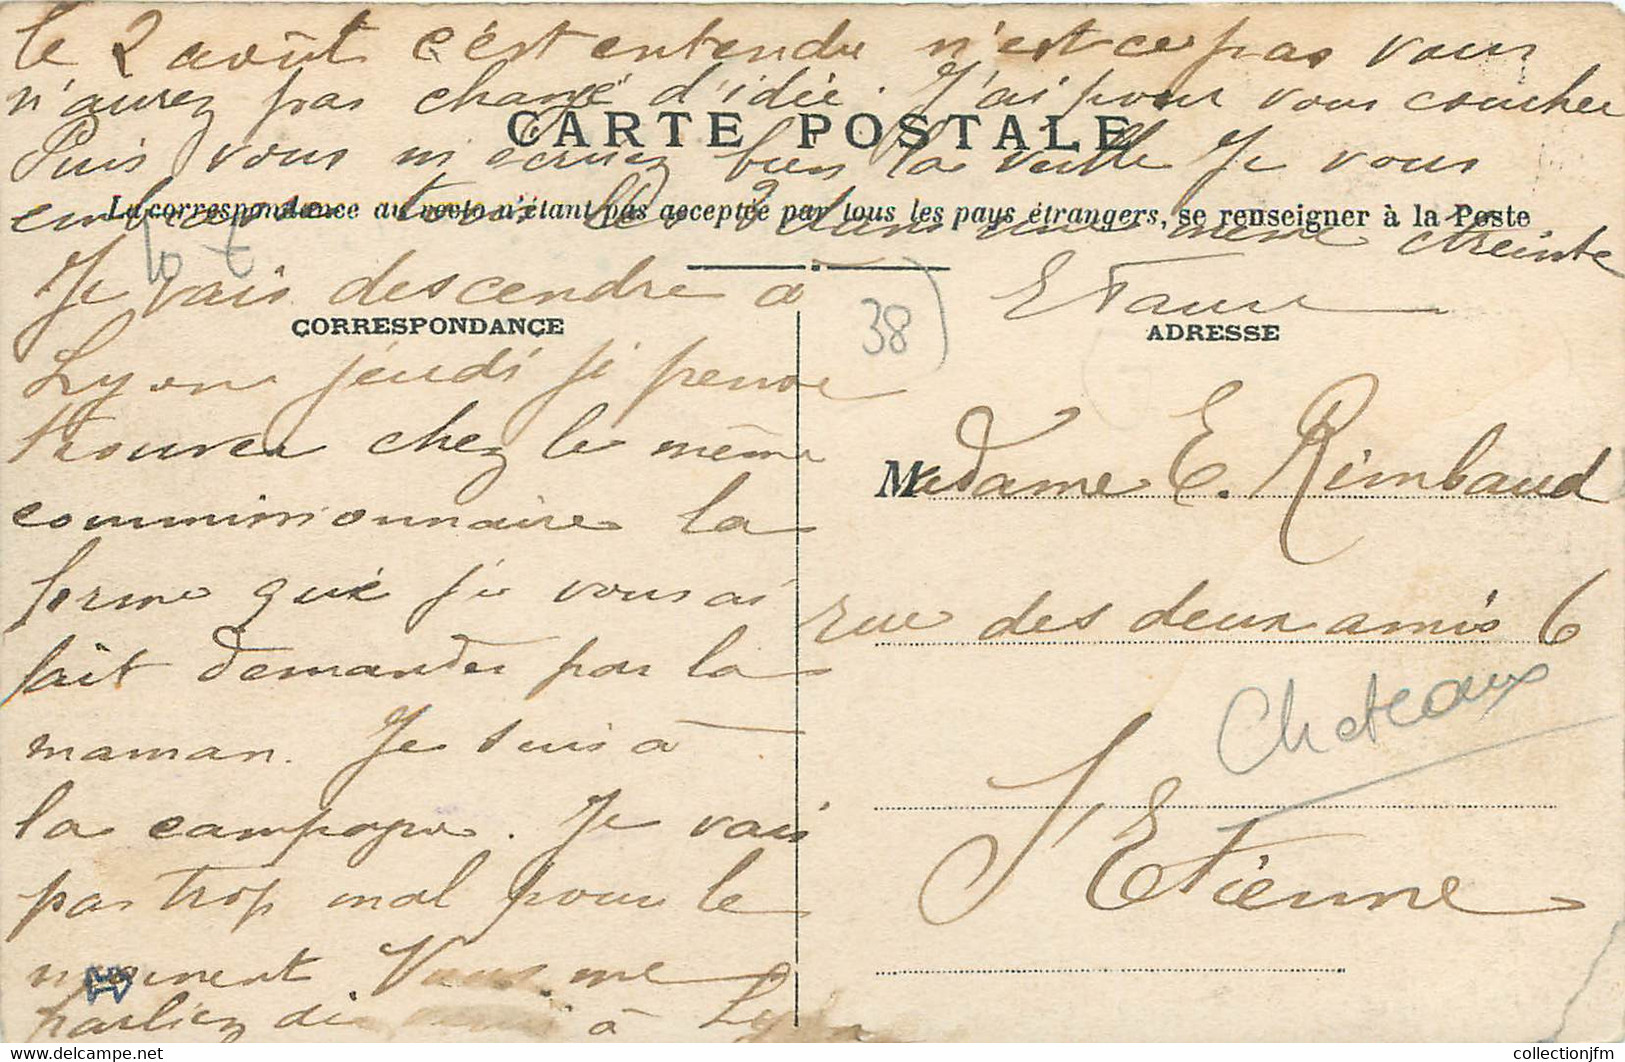 le 2 août c'est entendu n'est ce pas vous
n'aurez pas changé d'idée. J'ai pour vous coucher
CARTE POSTALE
Puis vous m'écrirez bien la veille Je vous
La correspondance au recto n'étant pas acceptée par tous les pays étrangers, se renseigner à la Poste
embrasse tous les 2 dans une même étreinte
E Faure
Je vais descendre à
38
CORRESPONDANCE
ADRESSE
Lyon jeudi je pense
trouver chez le même
commissionnaire la
forme que je vous ai
fait demander par la
maman. Je suis à
la campagne. Je vais
pas trop mal pour le
moment Vous me
parliez de à Lyon
Madame E. Rimbaud
rue des deux amis 6
Chateaux
St Etienne
collectionjfm